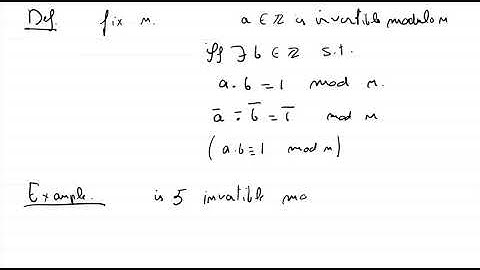 Def. fix m. a ∈ ℤ is invertible modulo m
iff ∃ b ∈ ℤ s.t.
a · b = 1 mod m.
ā · b̄ = 1̄ mod m
( a.b = 1 mod m )
Example. is 5 invertible mo